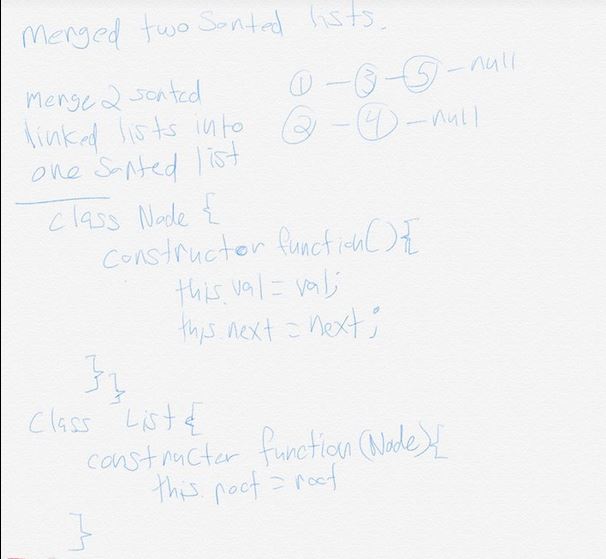 Merged two Sorted lists.
① – ③ – ⑤ – null
merge 2 sorted
linked lists into
② – ④ – null
one Sorted list
class Node {
constructor function() {
this.val = val;
this.next = next;
}}
Class List {
constructor function(Node) {
this.root = root
}